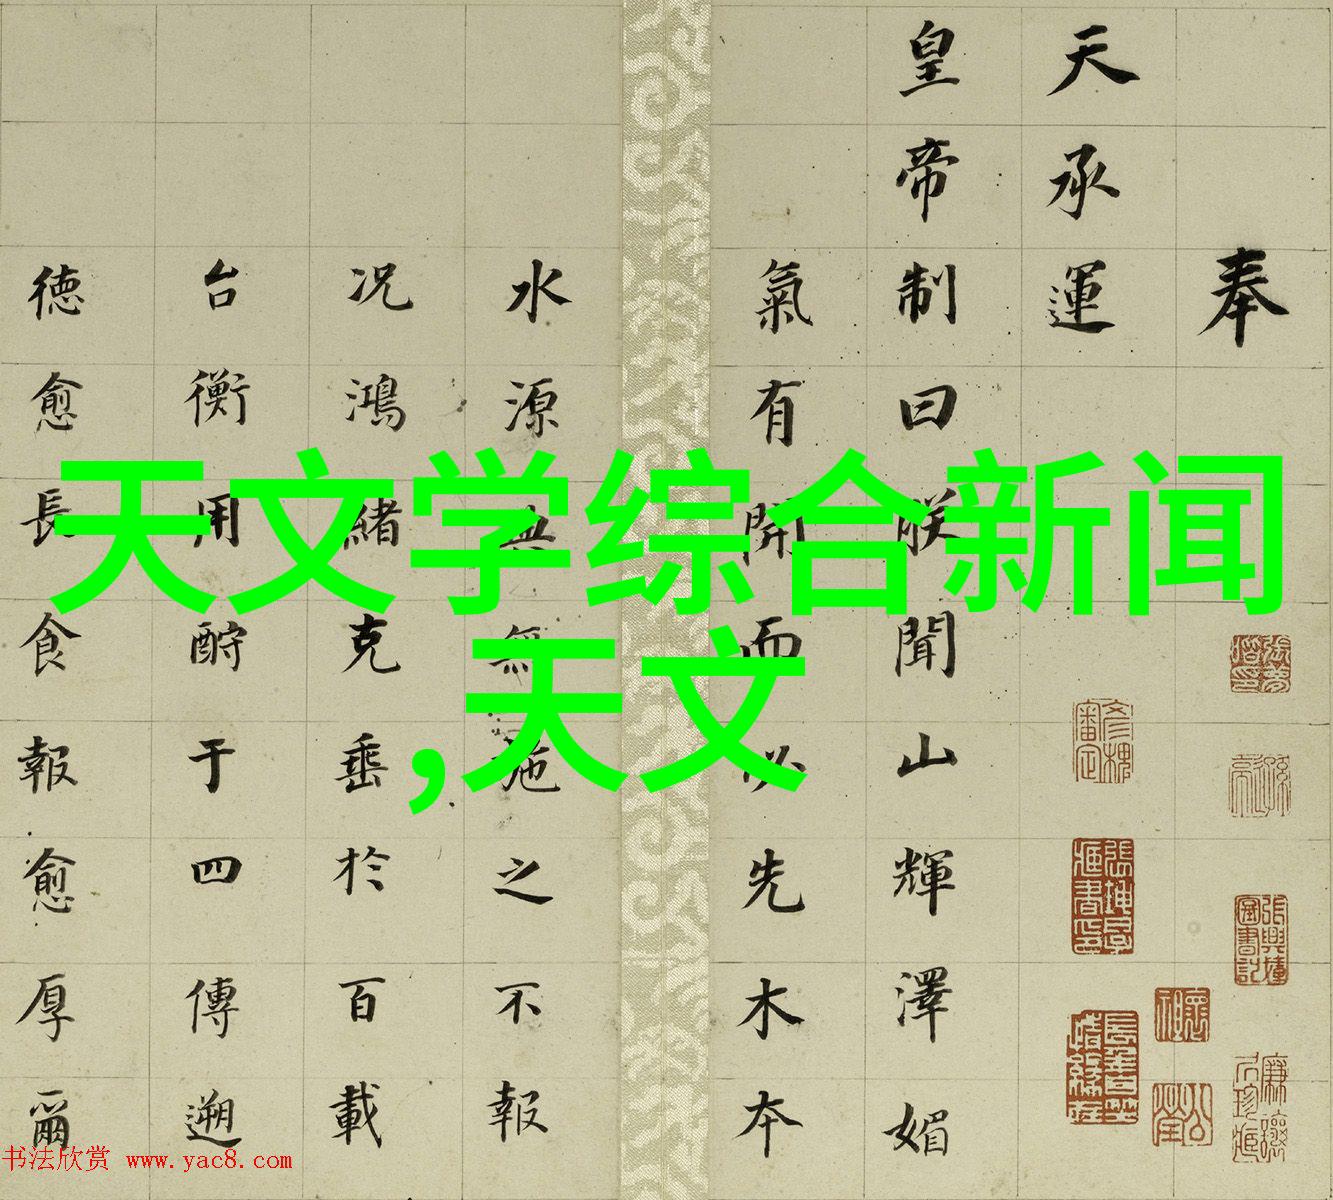 天文学综合新闻
,天文
奉
天承運
皇帝制曰朕聞山輝澤媚
氣有開而必先木本
水源典無施之不報
况鴻緒克垂於百載
台衡用酧于四傳遡
德愈長食報愈厚爾
书法欣赏 www.yac8.com